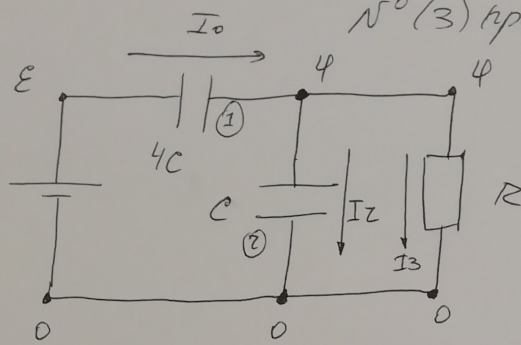 №(3) пр
I₀
ε
φ
φ
①
4C
C
I₂
R
②
I₃
0
0
0